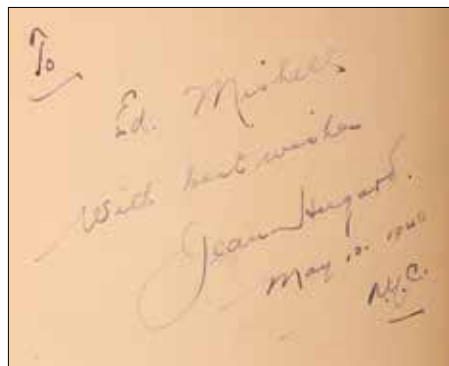 To
Ed. Mishell
With best wishes
Jean Hugard.
May 10. 1940
N.Y.C.